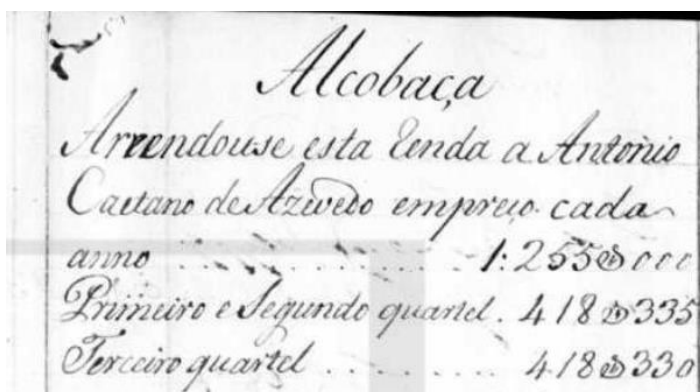 Alcobaça
Arrendouse esta Renda a Antonio
Caetano de Azevedo empreço cada
anno . . . . . . . . . . . . 1:255$000
Primeiro e Segundo quartel . 418$335
Terceiro quartel . . . . . . . . 418$330